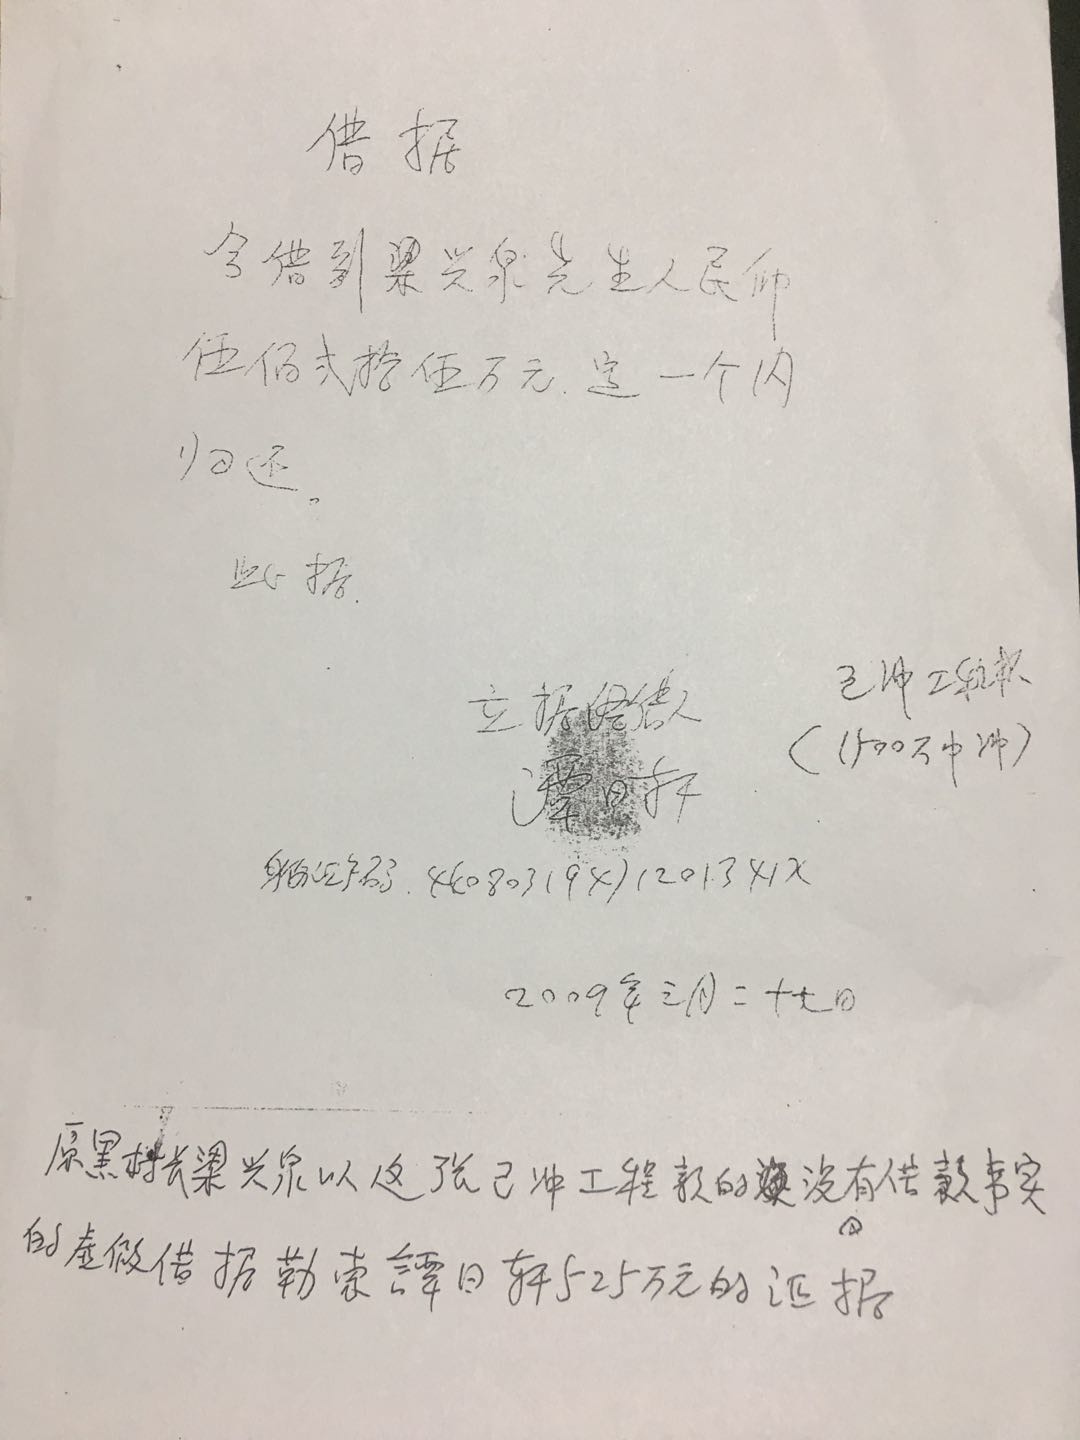 借据
今借到梁兴泉先生人民币
伍佰弍拾伍万元.定一个内
归还。
此据.
立据借人
已冲工程款
(1500万中冲)
谭日轩
身份证号码.
2009年三月二十七日
原黑村长梁兴泉以这张已冲工程款的没有借款事实
的虚假借据勒索譚日轩525万元的证据